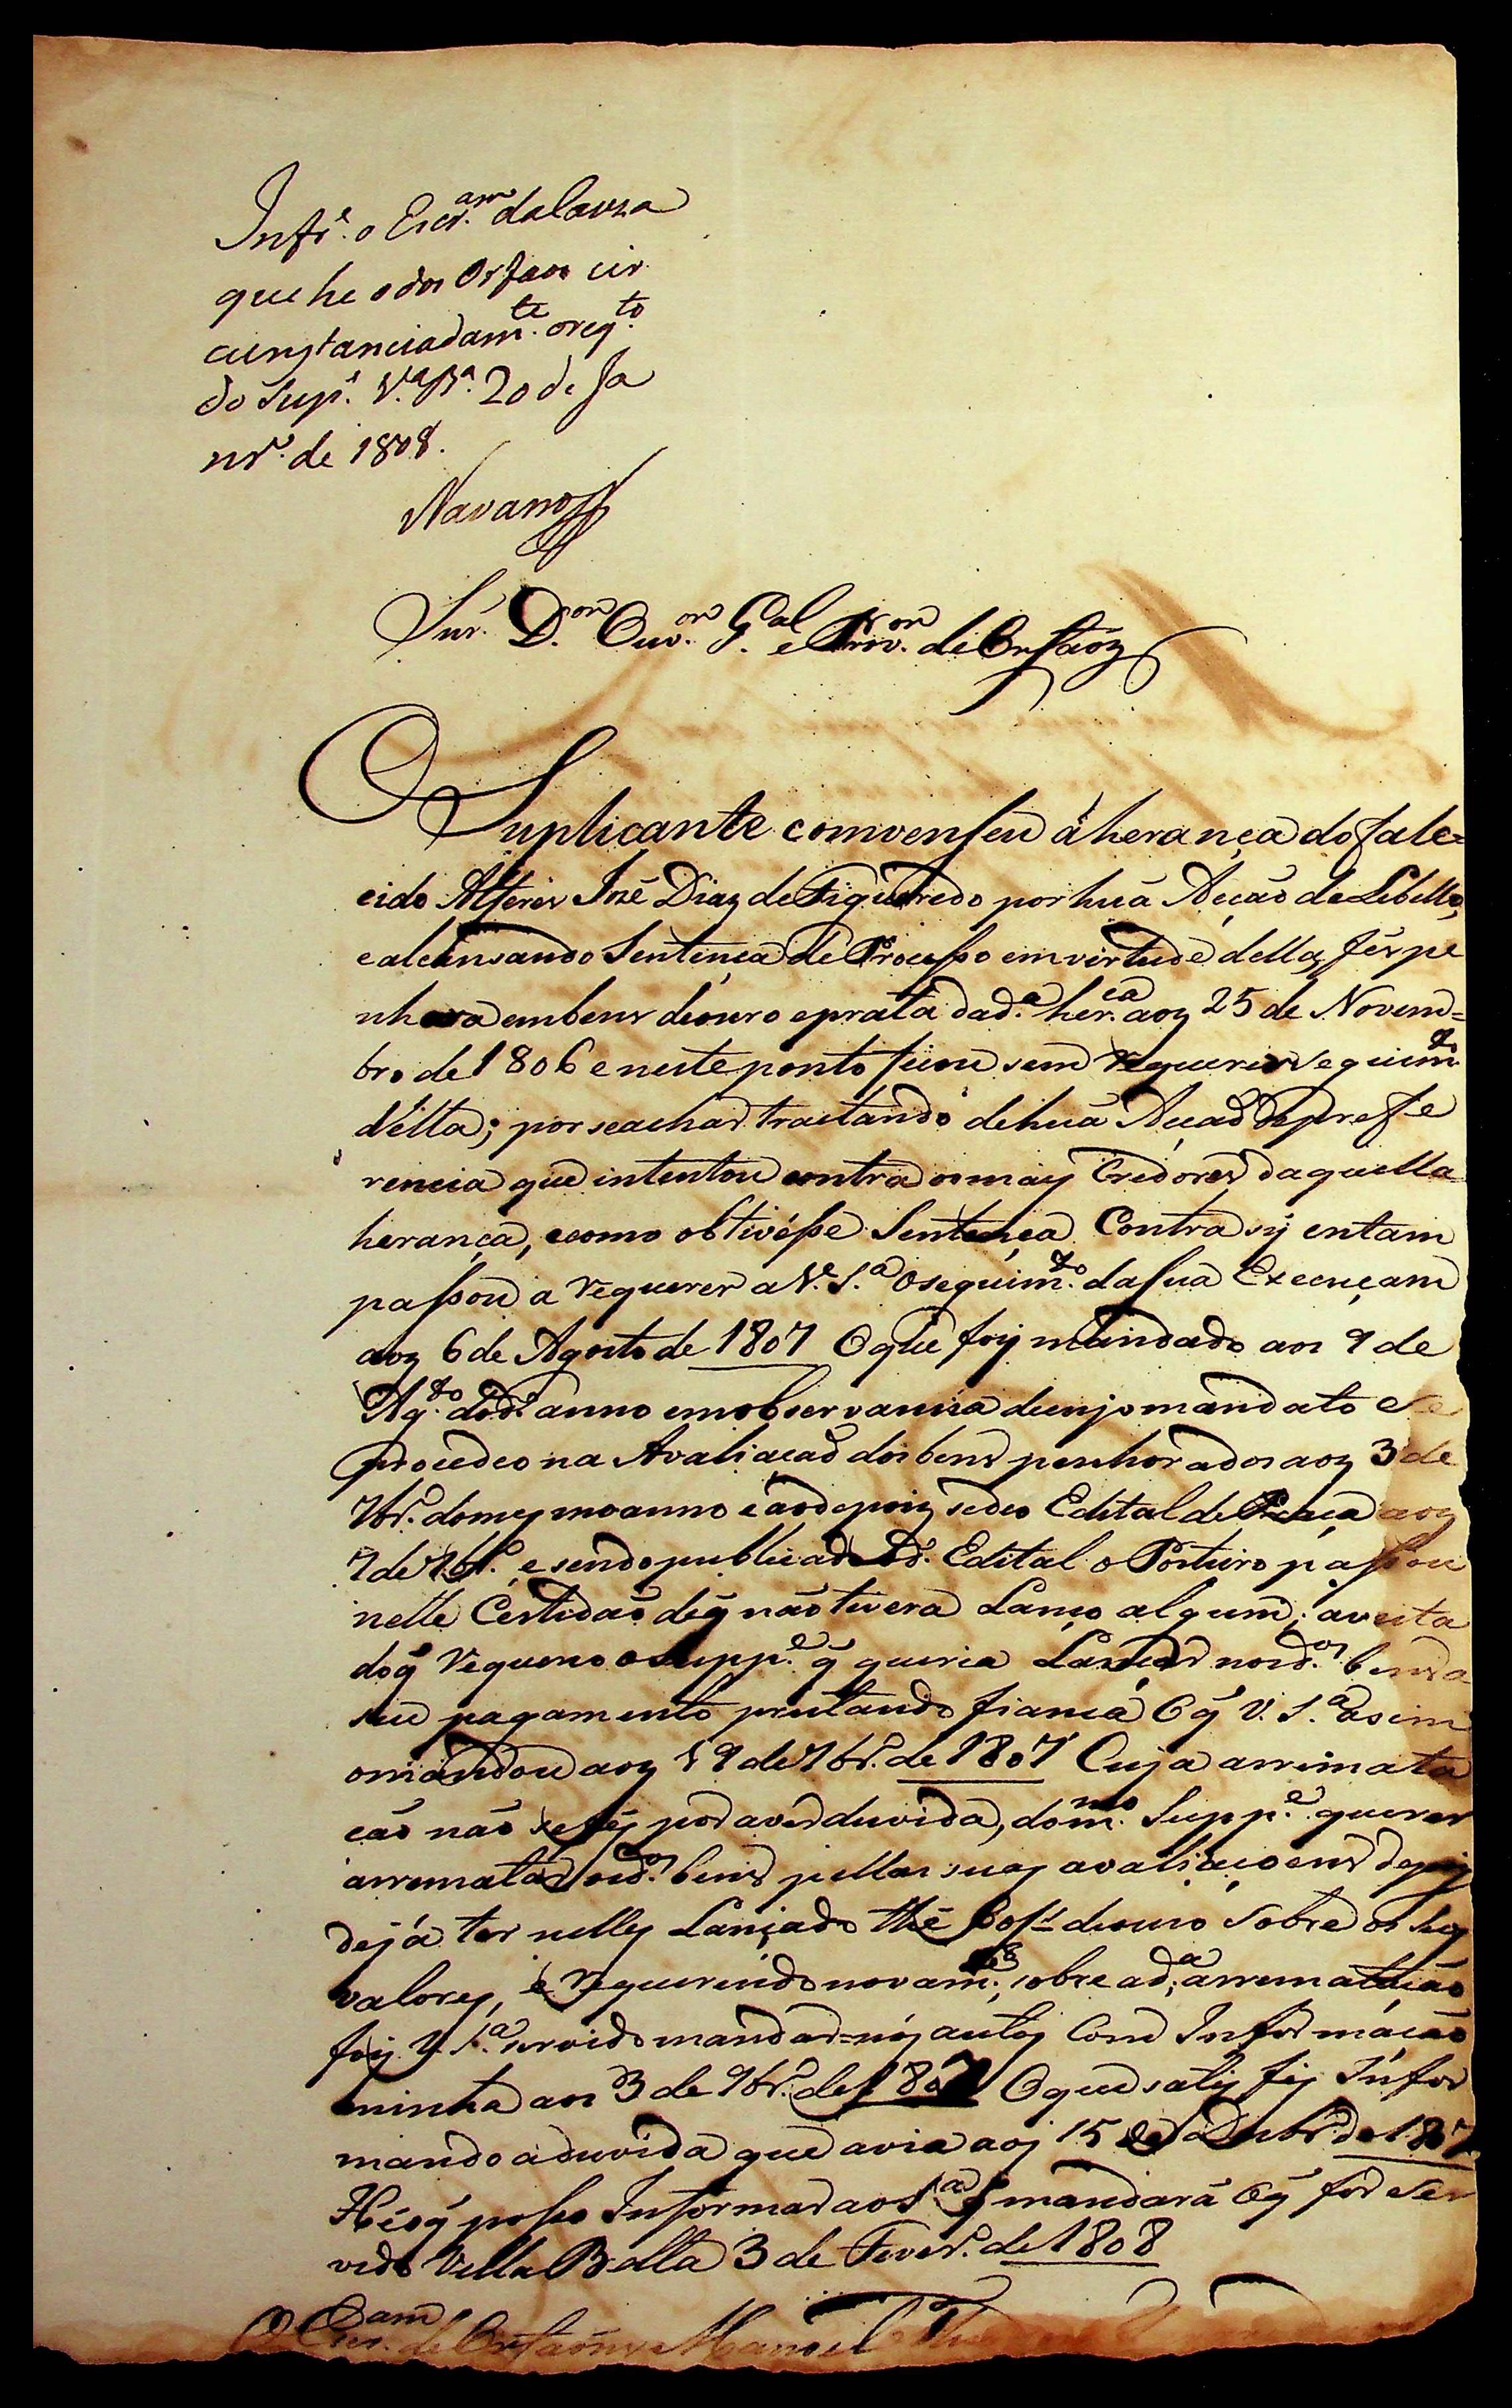 Infe. o Escram. da Cauza
que he o dos Orfaos cir
cunstanciadamte. o reqto.
do Supe. Va. Ba. 20 de Ja
nro. de 1808.
Navarro
Snr. Dor. Ouvor. Gal. e Provor. de Orfaoz
O Suplicante comvenseu á herança do fale=
cido Alferes Jozé Diaz de Figueiredo por huã Acçaõ de Libello,
e alcansando Sentença de Processo em virtude della, fes pe
nhora em bens de ouro e prata da da. herca. aoz 25 de Novem=
bro de 1806 e neste ponto ficou sem requerer seguimto.
d'élla; por se achar tractando de huã Acçaõ de prefe
rencia que intentou contra os mais Credores daquella
herança, e como obtivésse Sentença Contra sy entam
passou a requerer a V. Sa. o seguimto. da sua Execuçam
aoz 6 de Agosto de 1807 O que foy mandado aos 9 de
Agto. do do. anno em observancia de cujo mandato se
procedeo na Avaliacaõ dos bens penhorados aoz 3 de
7bro. do mesmo anno e ao depoiz se deo Edital de Praça aoz
7 de 7bro. e sendo publicado o do. Edital o Porteiro passou
nelle Certidaõ de q̃ naõ tivera Lanço algum; avista
do q̃ requereo o Suppe. q̃ queria Lançar nos dos. bens a
seu pagamento prestando fiança O q̃ V. Sa. asim
o mandou aoz 19 de 7bro. de 1807 Cuja arremata
caõ naõ se fez por aver duvida, do mmo. Suppe. querer
arrematar os dos. bens pellas suas avaliaçoens depois
de já ter nelles Lançado thé 60 rs de ouro sobre os seus
valores, e requerendo novamte., sobre a da. arremataçaõ
foy V. Sa. servido mandar=nos autos Com Informaçaõ
minha aos 3 de 9bro. de 1807 O que satisfiz Infor
mando a duvida que avia aos 15 de de 1807
Hé o q̃ posso Informar a V. Sa. q̃ mandará O q̃ for Ser
vido Villa Bella 3 de Fevero. de 1808
O Escram. de Orfaons Manoel